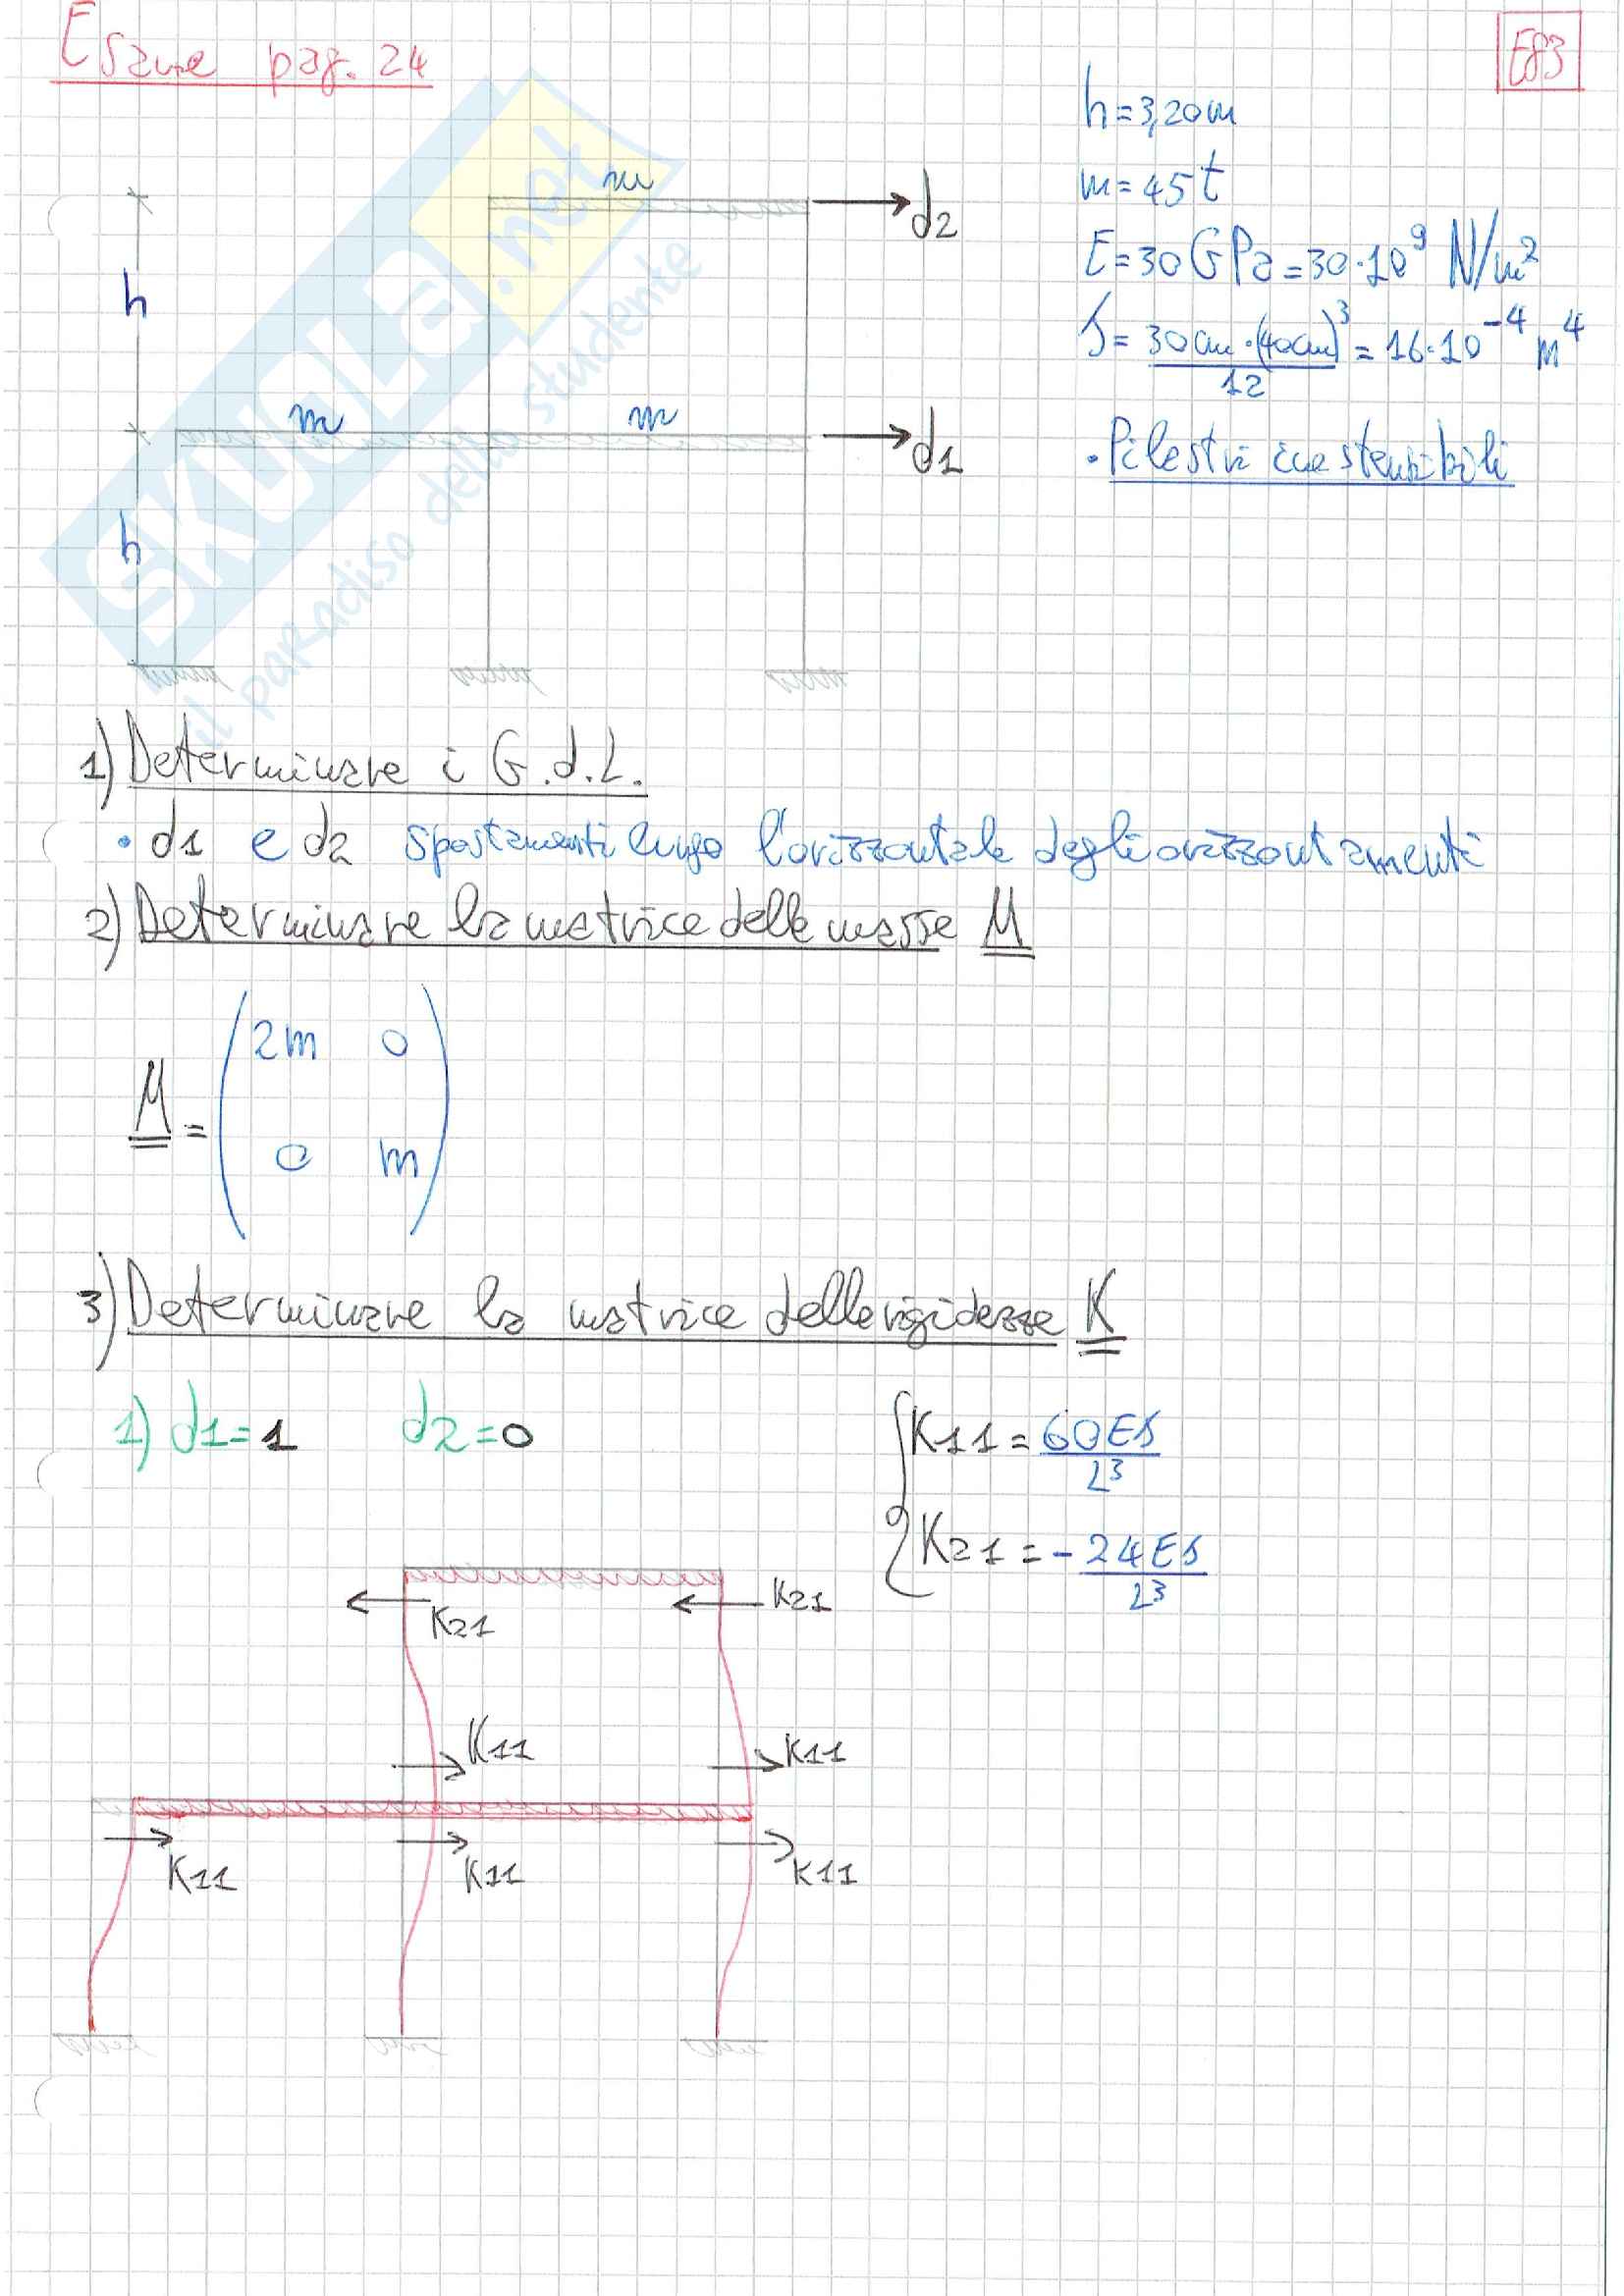 Esame pag. 24
E83
h = 3,20 m
m = 45 t
E = 30 GPa = 30·10⁹ N/m²
J = 30cm·(40cm)³ / 12 = 16·10⁻⁴ m⁴
• Pilastri inestensibili
m
d2
h
m
m
d1
h
SKUOLA.net
il paradiso dello studente
1) Determinare i G.d.L.
• d1 e d2 spostamenti lungo l'orizzontale degli orizzontamenti
2) Determinare la matrice delle masse M
M = (2m 0
0 m)
3) Determinare la matrice delle rigidezze K
1) d1 = 1 d2 = 0
K11 = 60EJ / L³
K21 = - 24EJ / L³
K21
K21
K11
K11
K11
K11
K11